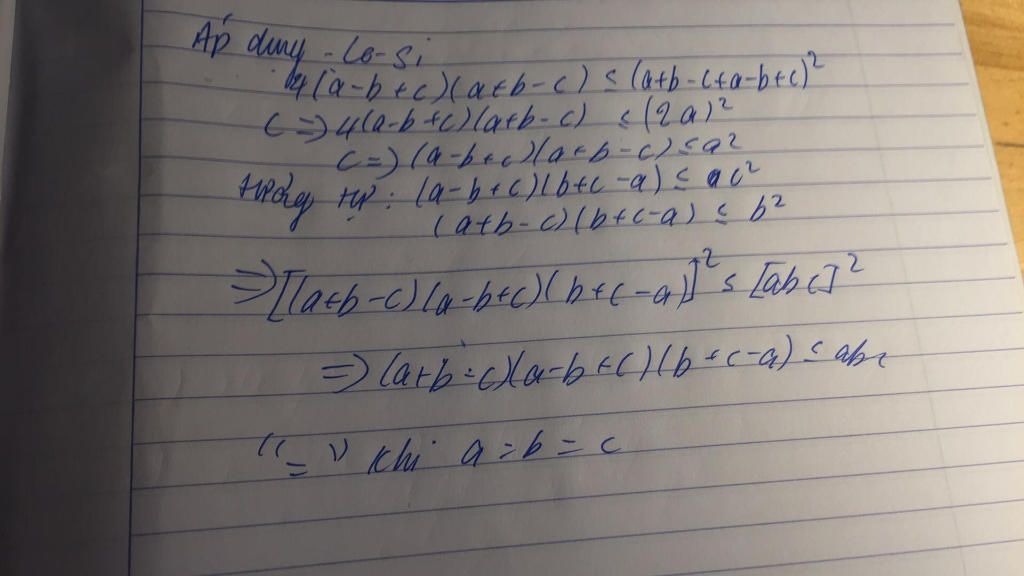 Áp dụng Cô-Si
4(a-b+c)(a+b-c) ≤ (a+b-c+a-b+c)²
<=> 4(a-b+c)(a+b-c) ≤ (2a)²
<=> (a-b+c)(a+b-c) ≤ a²
: (a-b+c)(b+c-a) ≤ c²
(a+b-c)(b+c-a) ≤ b²
=> [(a+b-c)(a-b+c)(b+c-a)]² ≤ [abc]²
=> (a+b-c)(a-b+c)(b+c-a) ≤ abc
"=" khi a=b=c